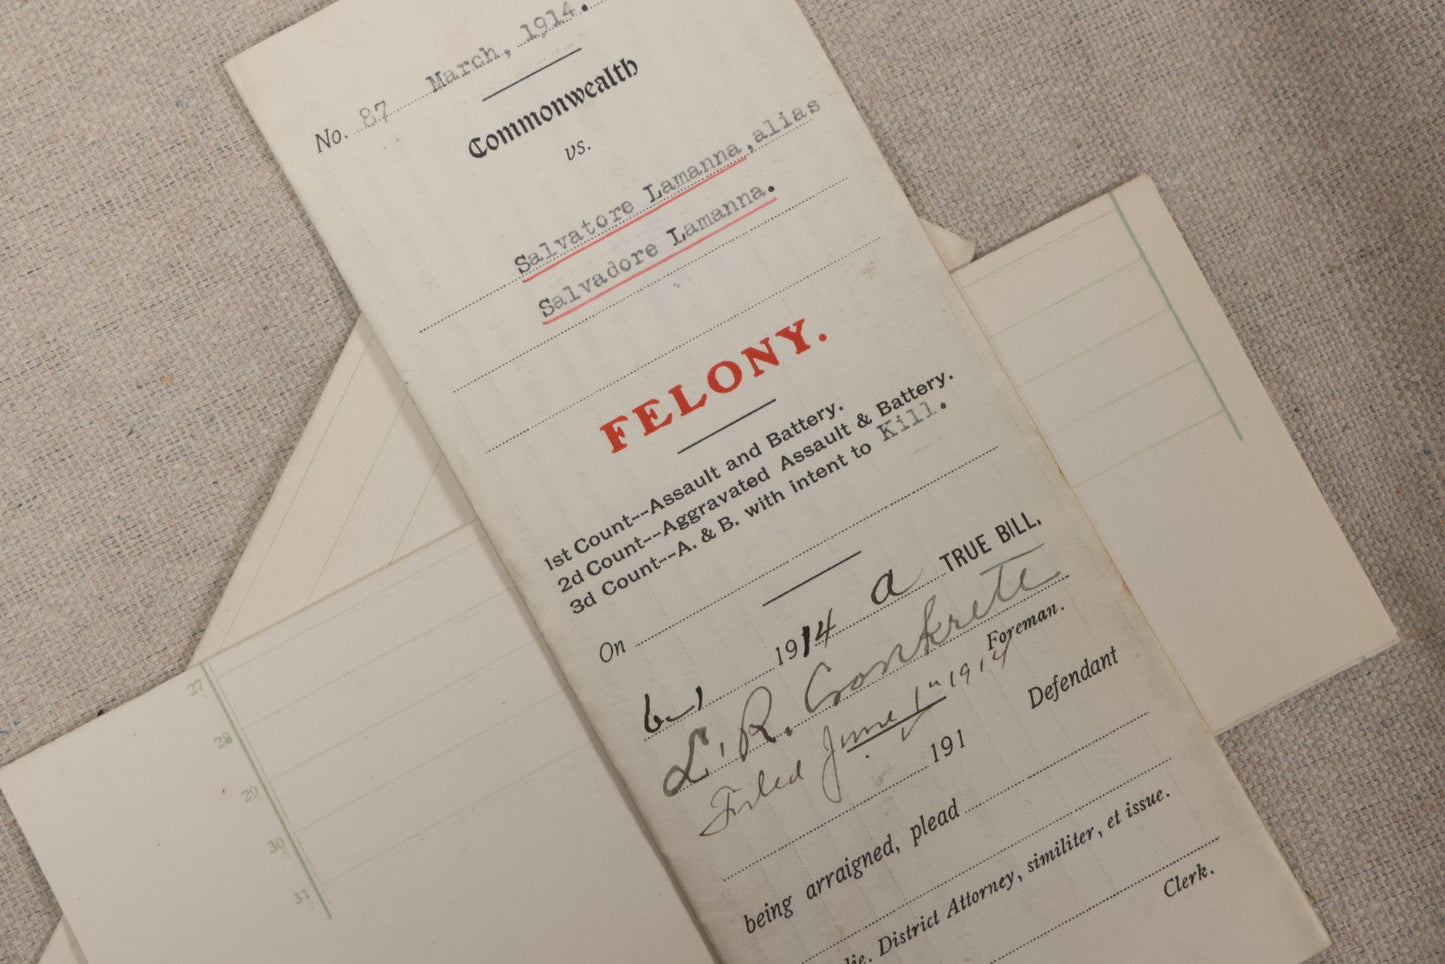 No. 87 March, 1914.
Commonwealth
vs.
Salvatore Lamanna, alias
Salvadore Lamanna.
FELONY.
1st Count--Assault and Battery.
2d Count--Aggravated Assault & Battery.
3d Count--A. & B. with intent to Kill.
On 1914 a TRUE BILL.
L. R. Conkrete
Foreman.
Filed June 1st 1914
191 Defendant
being arraigned, plead
District Attorney, similiter, et issue.
Clerk.
27
28
29
30
31